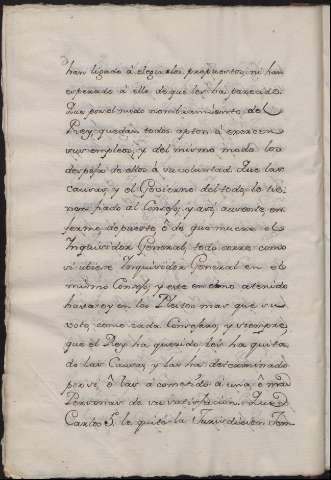 han ligado à elegir los propuestos, ni han
esperado à ello de que les ha parecido.
Que por el nudo nombramiento del
Rey, quedan todos aptos à exercer
sus empleos, y del mismo modo los
despoja de ellos à su voluntad. Que las
causas y el Govierno del todo lo tie-
nen fiado al Consejo, y assi ausente, en-
fermo depuesto ò de que muera el
Inquisidor General, todo corre como
si ubiese Inquisidor General en el
mismo Consejo, y este en como atenido
havia rey en los Pleitos mas que su
voto, como cada Consejero, y siempre,
que el Rey ha querido les ha quita-
do las Causas, y las ha determinado
por si, ò las a cometido à una, ò mas
Personas de su satisfacion. Que D.
Carlos 5. le quitò la Jurisdicion Tem-